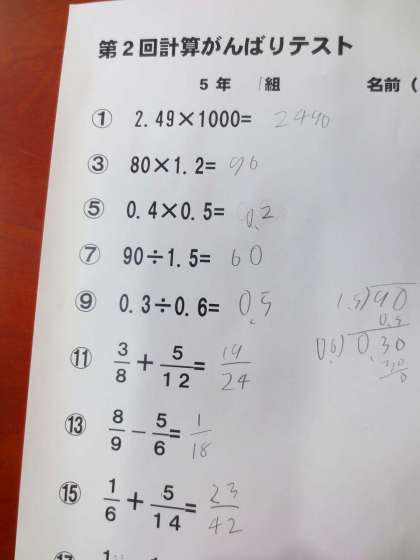 第2回計算がんばりテスト
5年 1組 名前(
① 2.49×1000= 2490
③ 80×1.2= 96
⑤ 0.4×0.5= 0.2
⑦ 90÷1.5= 60
⑨ 0.3÷0.6= 0.5
1.5)90
0.5
0.6)0.30
⑪ 3/8 + 5/12 = 19/24
⑬ 8/9 − 5/6 = 1/18
⑮ 1/6 + 5/14 = 23/42
⑰